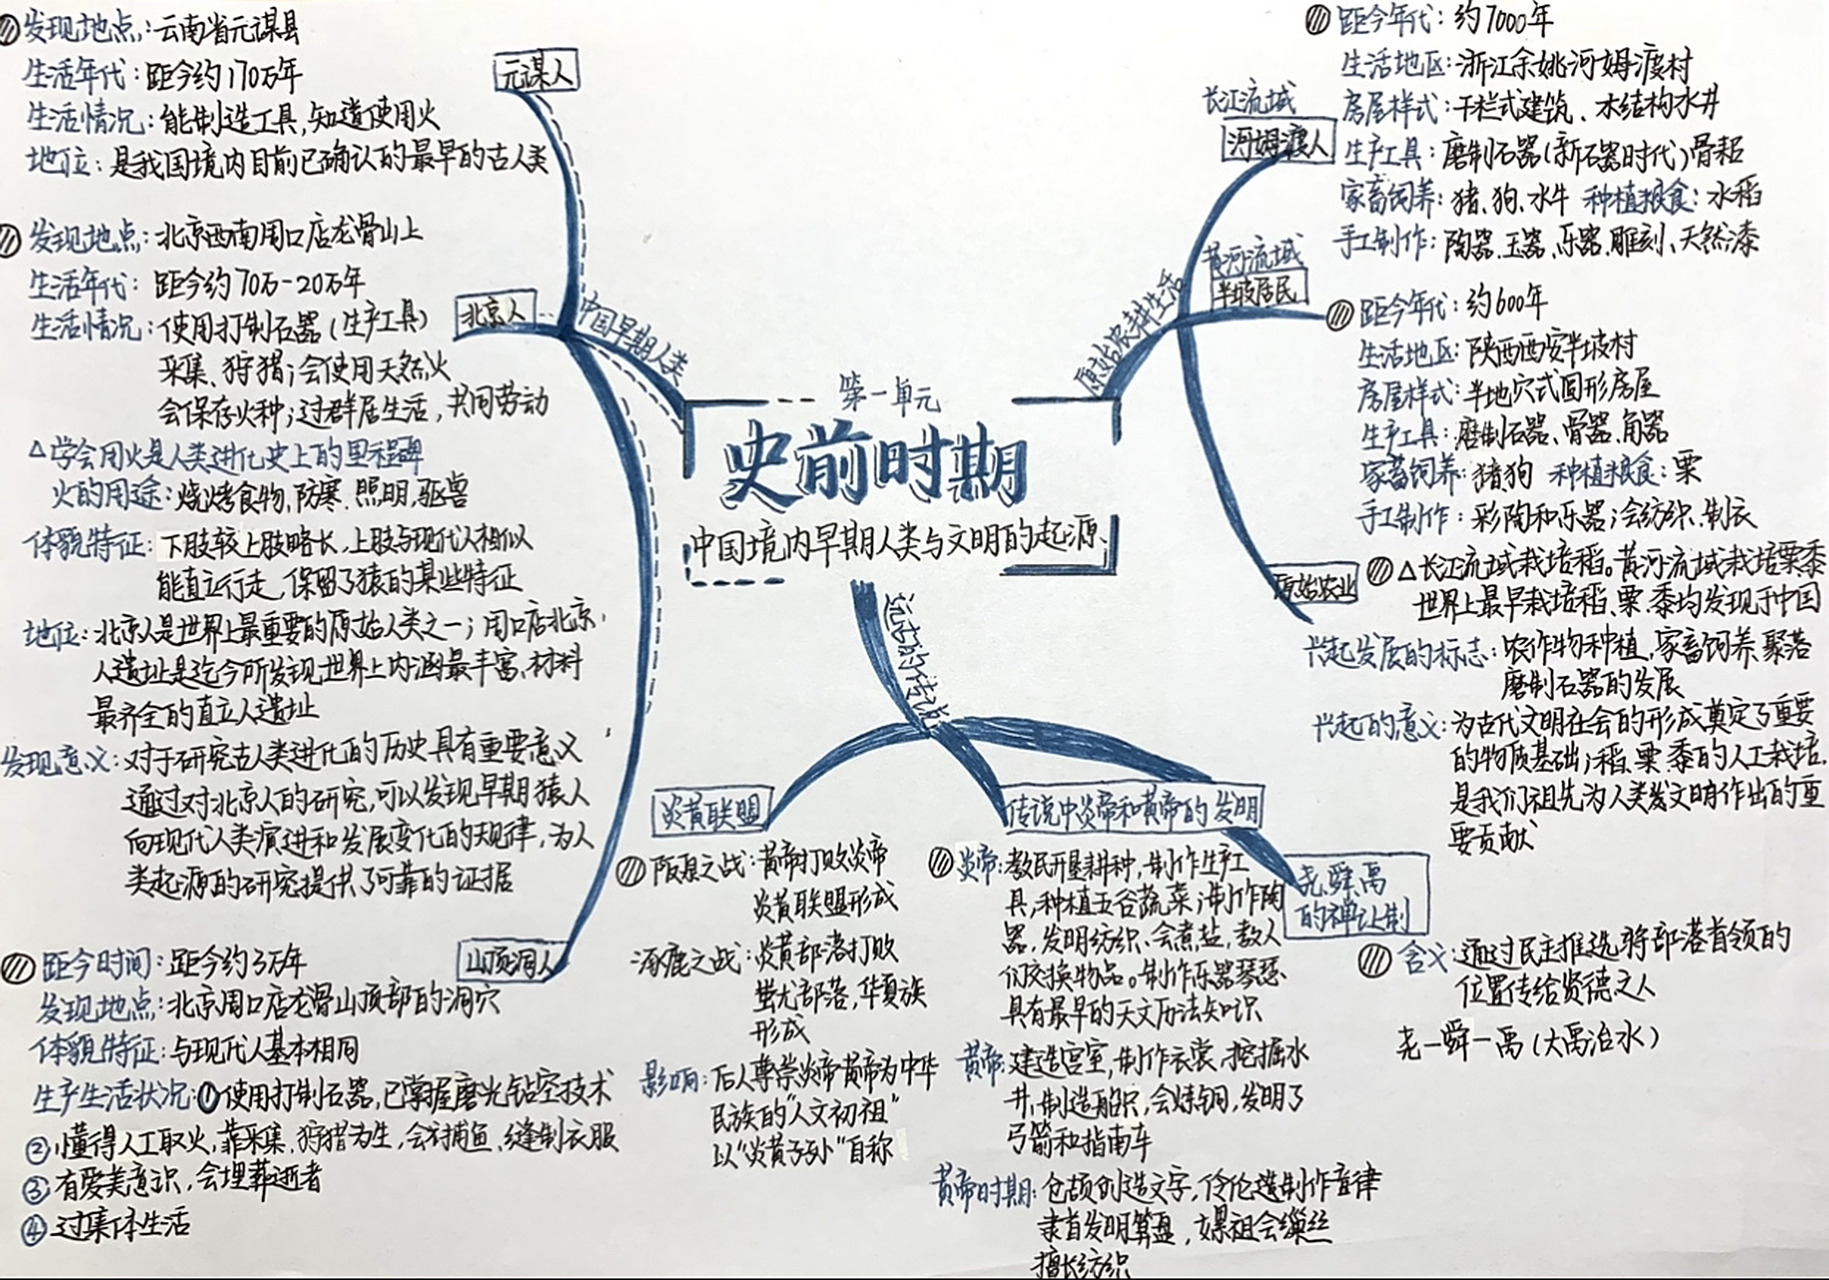 第一单元
史前时期
中国境内早期人类与文明的起源
中国早期人类
元谋人
发现地点:云南省元谋县
生活年代:距今约170万年
生活情况:能制造工具,知道使用火
地位:是我国境内目前已确认的最早的古人类
北京人
发现地点:北京西南周口店龙骨山上
生活年代:距今约70万-20万年
生活情况:使用打制石器(生产工具)
采集、狩猎;会使用天然火
会保存火种;过群居生活,共同劳动
△学会用火是人类进化史上的里程碑
火的用途:烧烤食物,防寒、照明,驱兽
体貌特征:下肢较上肢略长,上肢与现代人相似
能直立行走、保留了猿的某些特征
地位:北京人是世界上最重要的原始人类之一;周口店北京
人遗址是迄今所发现世界上内涵最丰富、材料
最齐全的直立人遗址
发现意义:对于研究古人类进化的历史具有重要意义
通过对北京人的研究,可以发现早期猿人
向现代人类演进和发展变化的规律,为人
类起源的研究提供了可靠的证据
山顶洞人
距今时间:距今约3万年
发现地点:北京周口店龙骨山顶部的洞穴
体貌特征:与现代人基本相同
生产生活状况:①使用打制石器,已掌握磨光钻空技术
②懂得人工取火,靠采集、狩猎为生,会捕鱼、缝制衣服
③有爱美意识,会埋葬逝者
④过集体生活
原始农耕生活
长江流域
河姆渡人
距今年代:约7000年
生活地区:浙江余姚河姆渡村
房屋样式:干栏式建筑、木结构水井
生产工具:磨制石器(新石器时代)骨耜
家畜饲养:猪、狗、水牛 种植粮食:水稻
手工制作:陶器、玉器、乐器、雕刻、天然漆
黄河流域
半坡居民
距今年代:约600年
生活地区:陕西西安半坡村
房屋样式:半地穴式圆形房屋
生产工具:磨制石器、骨器、角器
家畜饲养:猪狗 种植粮食:粟
手工制作:彩陶和乐器;会纺织、制衣
原始农业
△长江流域栽培稻。黄河流域栽培粟黍
世界上最早栽培稻、粟、黍均发现于中国
兴起发展的标志:农作物种植、家畜饲养、聚落
磨制石器的发展
兴起的意义:为古代文明社会的形成奠定了重要
的物质基础;稻、粟、黍的人工栽培,
是我们祖先为人类发文明作出的重
要贡献
远古的传说
炎黄联盟
阪泉之战:黄帝打败炎帝
炎黄联盟形成
涿鹿之战:炎黄部落打败
蚩尤部落,华夏族
形成
影响:后人尊崇炎帝黄帝为中华
民族的"人文初祖"
以"炎黄子孙"自称
传说中炎帝和黄帝的发明
炎帝:教民开垦耕种,制作生产工
具,种植五谷蔬菜;制作陶
器,发明纺织、会煮盐,教人
们交换物品。制作乐器琴瑟
具有最早的天文历法知识
黄帝:建造宫室,制作衣裳,挖掘水
井,制造船只,会炼铜,发明了
弓箭和指南车
黄帝时期:仓颉创造文字,伶伦造制作音律
隶首发明算盘,嫘祖会缫丝
擅长纺织
尧舜禹
的禅让制
含义:通过民主推选,将部落首领的
位置传给贤德之人
尧—舜—禹(大禹治水)